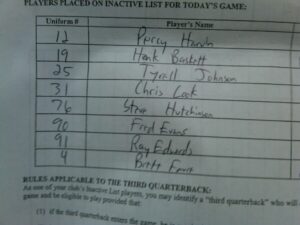 PLAYERS PLACED ON INACTIVE LIST FOR TODAY'S GAME:
Uniform # Player's Name
12 Percy Harvin
19 Hank Baskett
25 Tyrell Johnson
31 Chris Cook
76 Steve Hutchinson
90 Fred Evans
91 Ray Edwards
4 Brett Favre
RULES APPLICABLE TO THE THIRD QUARTERBACK:
As one of your club's Inactive List players, you may identify a "third quarterback" who will
game and be eligible to play provided that:
(1) if the third quarterback enters the game, he